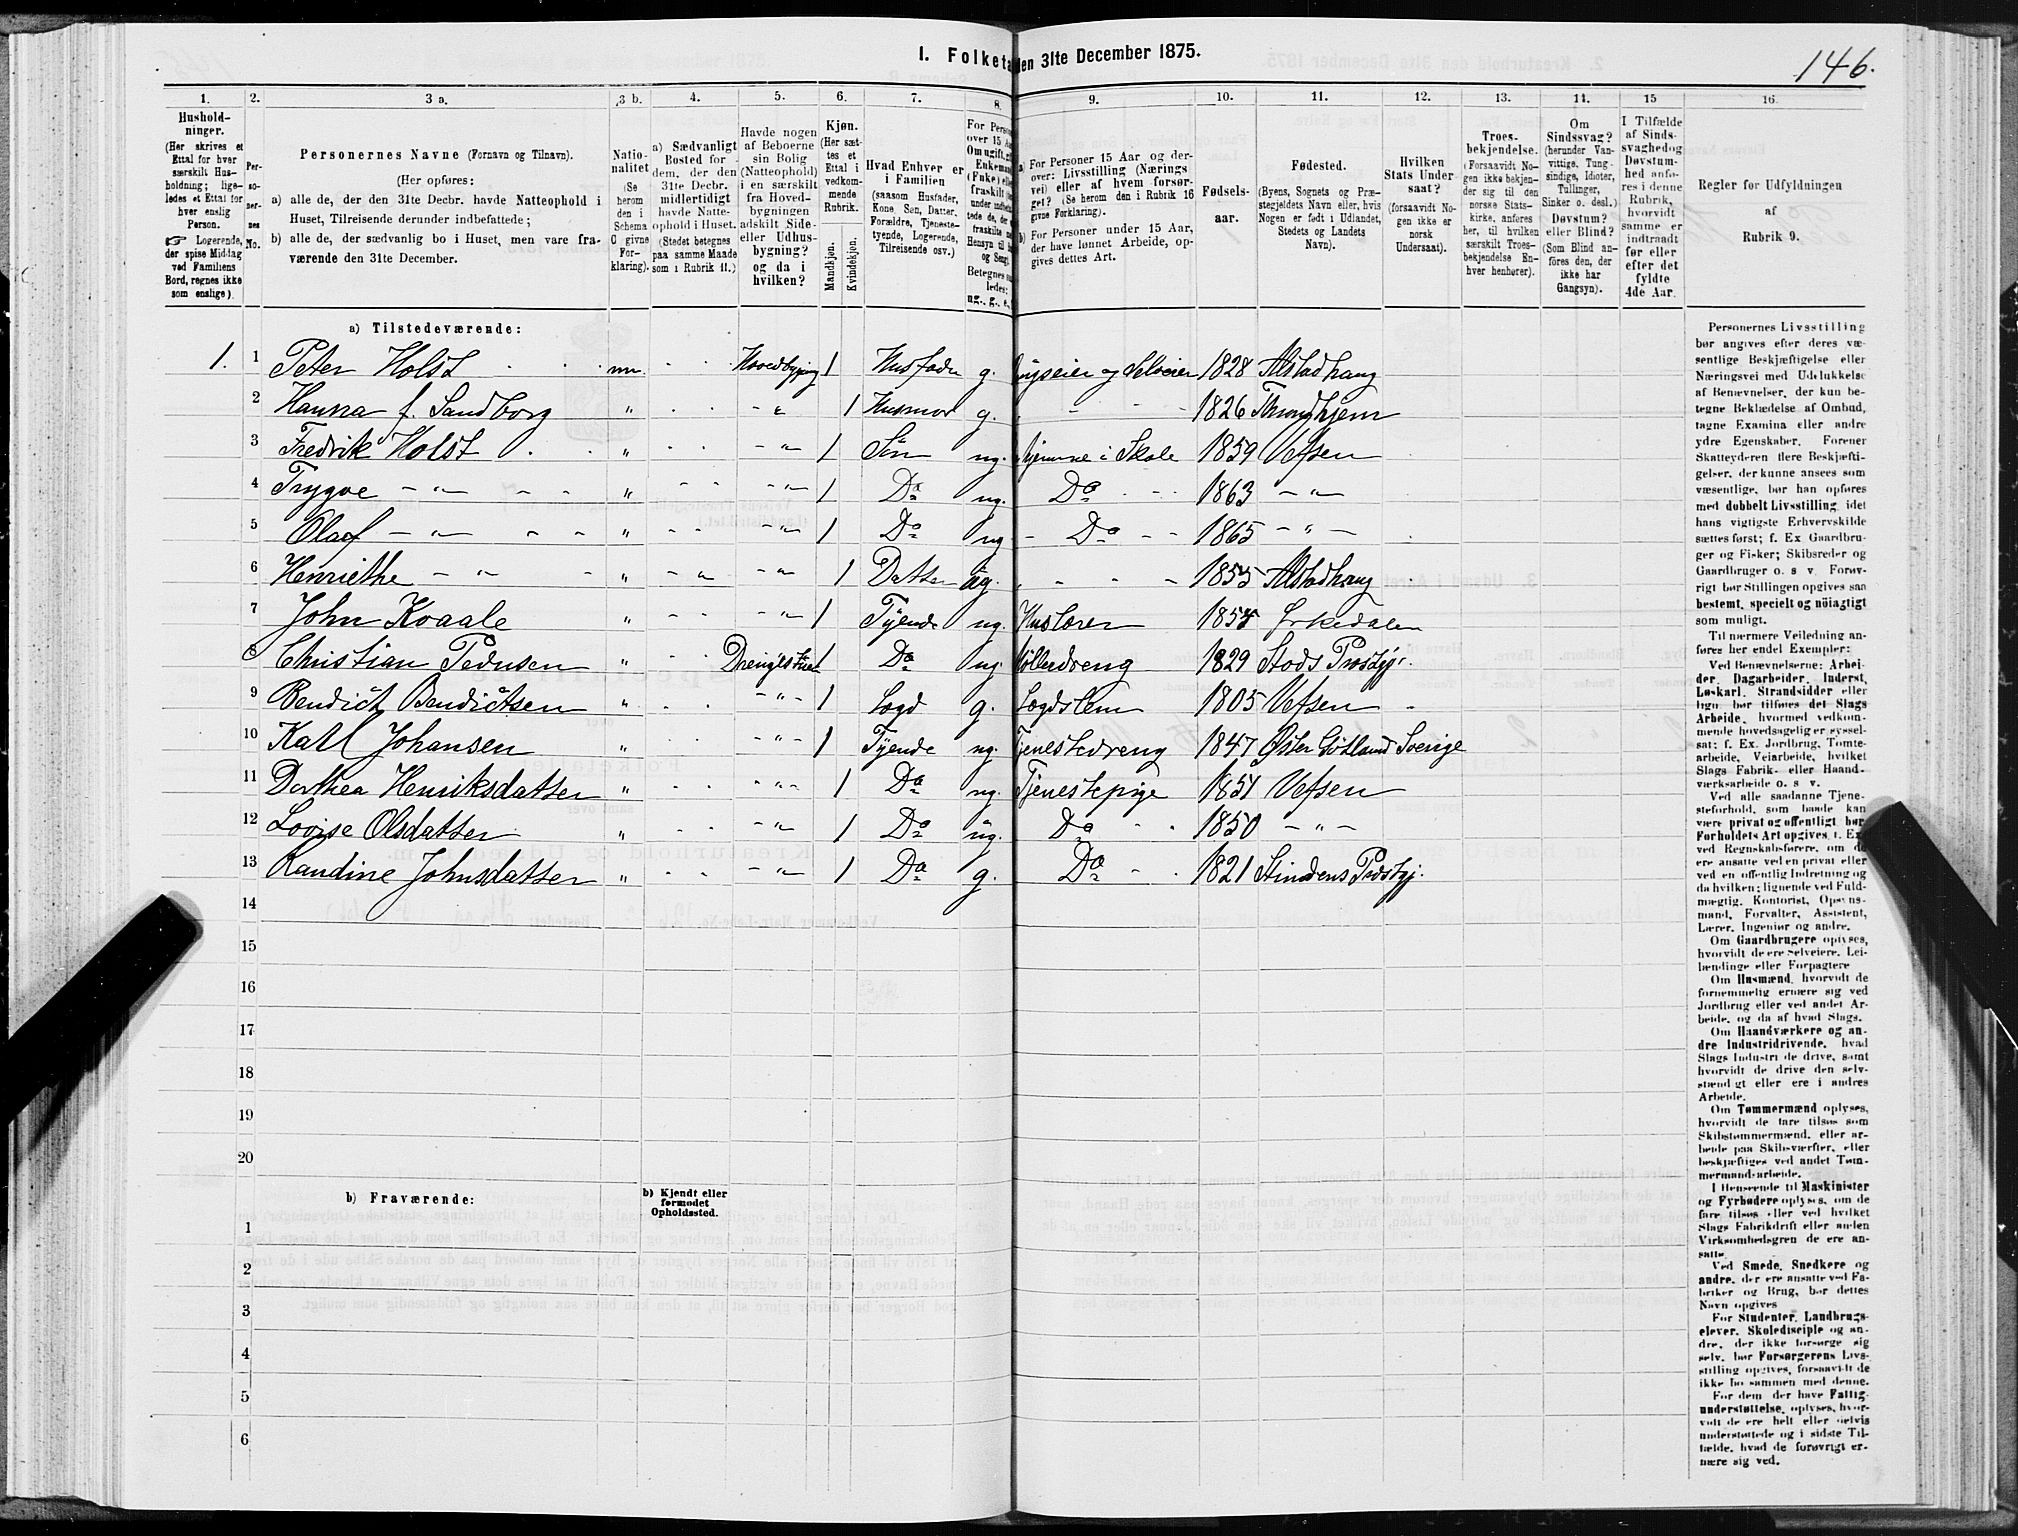 146.
I. Folketa
den 31te December 1875.
1. 2. 3 a. 3 b. 4. 5. 6. 7. 8. 9. 10. 11. 12. 13. 14. 15 16.
Hushold-
ninger.
(Her skrives et
Ettal for hver
særskilt Hus-
holdning; lige-
ledes et Ettal for
hver enslig
Person.
☞ Logerende,
der spise Middag
ved Familiens
Bord, regnes ikke
som enslige).
Per-
so-
ner-
nes
No.
Personernes Navne (Fornavn og Tilnavn).
(Her opføres:
a) alle de, der den 31te Decbr. havde Natteophold i
Huset, Tilreisende derunder indbefattede;
b) alle de, der sædvanlig bo i Huset, men vare fra-
værende den 31te December.
Natio-
nalitet
(Se
herom
den i
Schema
O givne
For-
klaring).
a) Sædvanligt
Bosted for
dem, der den
31te Decbr.
midlertidigt
havde Natte-
ophold i Huset.
(Stedet betegnes
paa samme Maade
som i Rubrik 11.)
Havde nogen
af Beboerne
sin Bolig
(Natteophold)
i en særskilt
fra Hoved-
bygningen
adskilt Side-
eller Udhus-
bygning?
og da i
hvilken?
Kjøn.
(Her sæt-
tes et
Ettal i
vedkom-
mende
Rubrik.
Mandkjøn.
Kvindekjøn.
Hvad Enhver er
i Familien
(saasom Husfader,
Kone, Søn, Datter,
Forældre, Tjeneste-
tyende, Logerende,
Tilreisende osv.)
For Perso
over 15 Aa
Om ugift, gi
Enkemand
(Fnke) elle
fraskilt
under indbe
tede de, der
fraskilte
Hensyn til
og Seng).
Betegnes
ledes:
ug., g., e.,
a) For Personer 15 Aar og der-
over: Livsstilling (Nærings-
vei) eller af hvem forsør-
get? (Se herom den i Rubrik 16
givne Forklaring).
b) For Personer under 15 Aar,
der have lønnet Arbeide, op-
gives dettes Art.
Fødsels-
aar.
Fødested.
(Byens, Sognets og Præ-
stegjeldets Navn eller, hvis
Nogen er født i Udlandet,
Stedets og Landets
Navn).
Hvilken
Stats Under
saat?
(forsaavidt No-
gen ikke er
norsk
Undersaat).
Troes-
bekjendelse.
(Forsaavidt No-
gen ikke bekjen-
der sig til den
norske Stats-
kirke, anføres
her, til hvilken
særskilt Troes-
bekjendelse En-
hver henhører).
Om
Sindssvag?
(herunder Van-
vittige, Tung-
sindige, Idioter,
Tullinger,
Sinker o. desl.)
Døvstum?
eller Blind?
(Som Blind an-
føres den, der
ikke har
Gangsyn).
I Tilfælde
af Sinds-
svaghed og
Døvstum-
hed anfø-
res i denne
Rubrik,
hvorvidt
samme er
indtraadt
før eller
efter det
fyldte
4de Aar.
Regler for Udfyldningen
af
Rubrik 9.
a) Tilstedeværende:
1. 1 Peter Holst nn. Hovedbygning 1 Husfader g. og Selveier 1828 Alstadhaug
2 Hanna f. Sandborg " " 1 Husmor g. 1826 Throndhjem
3 Fredrik Holst " " 1 Søn ug. i Skole 1859 Vefsen
4 Trygve " " " 1 Do ug. Do 1863 "
5 Olaf " " " 1 Do ug Do 1865 "
6 Henriethe " " " " 1 Datter ug. 1855 Alstadhaug
7 John Kvaale " " 1 Tyende ug. Huslærer 1855 Ørkedalen
8 Christian Pedersen " Drengestuen 1 Do ug. Mølledreng 1829 Stods Prestgj.
9 Bendict Bendictsen " " 1 Logd g. Logdslem 1805 Vefsen
10 Karl Johansen " " 1 Tyende ug. Tjenestedreng 1847 Øster Götland Sverige
11 Dorthea Henriksdatter " " 1 Do ug. Tjenestepige 1851 Vefsen
12 Lovise Olsdatter " " 1 Do ug. Do 1850 "
13 Randine Johnsdatter " " 1 Do g. Do 1821 Prestgj.
14
15
16
17
18
19
20
b) Fraværende:
b) Kjendt eller
formodet
Opholdssted.
1
2
3
4
5
6
Personernes Livsstilling
bør angives efter deres væ-
sentlige Beskjæftigelse eller
Næringsvei med Udelukkelse
af Benævnelser, der kun be-
tegne Beklædelse af Ombud,
tagne Examina eller andre
ydre Egenskaber. Forener
Skatteyderen flere Beskjæfti-
gelser, der kunne ansees som
væsentlige, bør han opføres
med dobbelt Livsstilling, idet
hans vigtigste Erhvervskilde
sættes først; f. Ex Gaardbru-
ger og Fisker; Skibsreder og
Gaardbruger o. s v. Forøv-
rigt bør Stillingen opgives saa
bestemt, specielt og nöiagtigt
som muligt.
Til nærmere Veiledning an-
føres her endel Exempler:
Ved Benævnelserne: Arbei-
der, Dagarbeider, Inderst,
Løskarl, Strandsidder eller
lign. bør tilføies det Slags
Arbeide, hvormed vedkom-
mende hovedsagelig er syssel-
sat; f. Ex. Jordbrug, Tomte-
arbeide, Veiarbeide, hvilket
Slags Fabrik- eller Haand-
værksarbeide o. s v.
Ved alle saadanne Tjene-
steforhold, som baade kan
være privat og offentligt, bør
Forholdets Art opgives, f. Ex
ved Regnskabsførere, om de
ere ansatte ved en privat eller
ved en offentlig Indretning og
da hvilken; lignende ved Fuld-
mægtig, Kontorist, Opsyns-
mand, Forvalter, Assistent,
Lærer, Ingeniør og andre.
Om Gaardbrugere oplyses,
hvorvidt de ere Selveiere, Lei-
lændinge eller Forpagtere
Om Husmænd, hvorvidt de
fornemmelig ernære sig ved
Jordbrug eller ved andet Ar-
beide, og da af hvad Slags.
Om Haandværkere og an-
dre Industridrivende, hvad
Slags Industri de drive, samt
hvorvidt de drive den selv-
stændigt eller ere i andres
Arbeide.
Om Tømmermænd oplyses,
hvorvidt de fare tilsøs som
Skibstømmermænd, eller ar-
beide paa Skibsværfter, eller
beskjæftiges ved andet Tøm-
mermandsarbeide.
I Henseende til Maskinister
og Fyrbødere oplyses, om de
fare tilsøs eller ved hvilket
Slags Fabrikdrift eller anden
Virksomhedsgren de ere an-
satte.
Ved Smede, Snedkere og
andre, der ere ansatte ved Fa-
briker og Brug, bør dettes
Navn opgives
For Studenter, Landbrugs-
elever, Skoledisciple og an-
dre, der ikke forsørge sig
selv, bør Forsørgerens Livs-
stilling opgives, forsaavidt de
ikke bo sammen med denne.
For dem, der have Fattig-
understøttelse, oplyses, hvor-
vidt de ere helt eller delvis
understøttede og i sidste Til-
fælde, hvad de forøvrigt er-
nære sig ved.